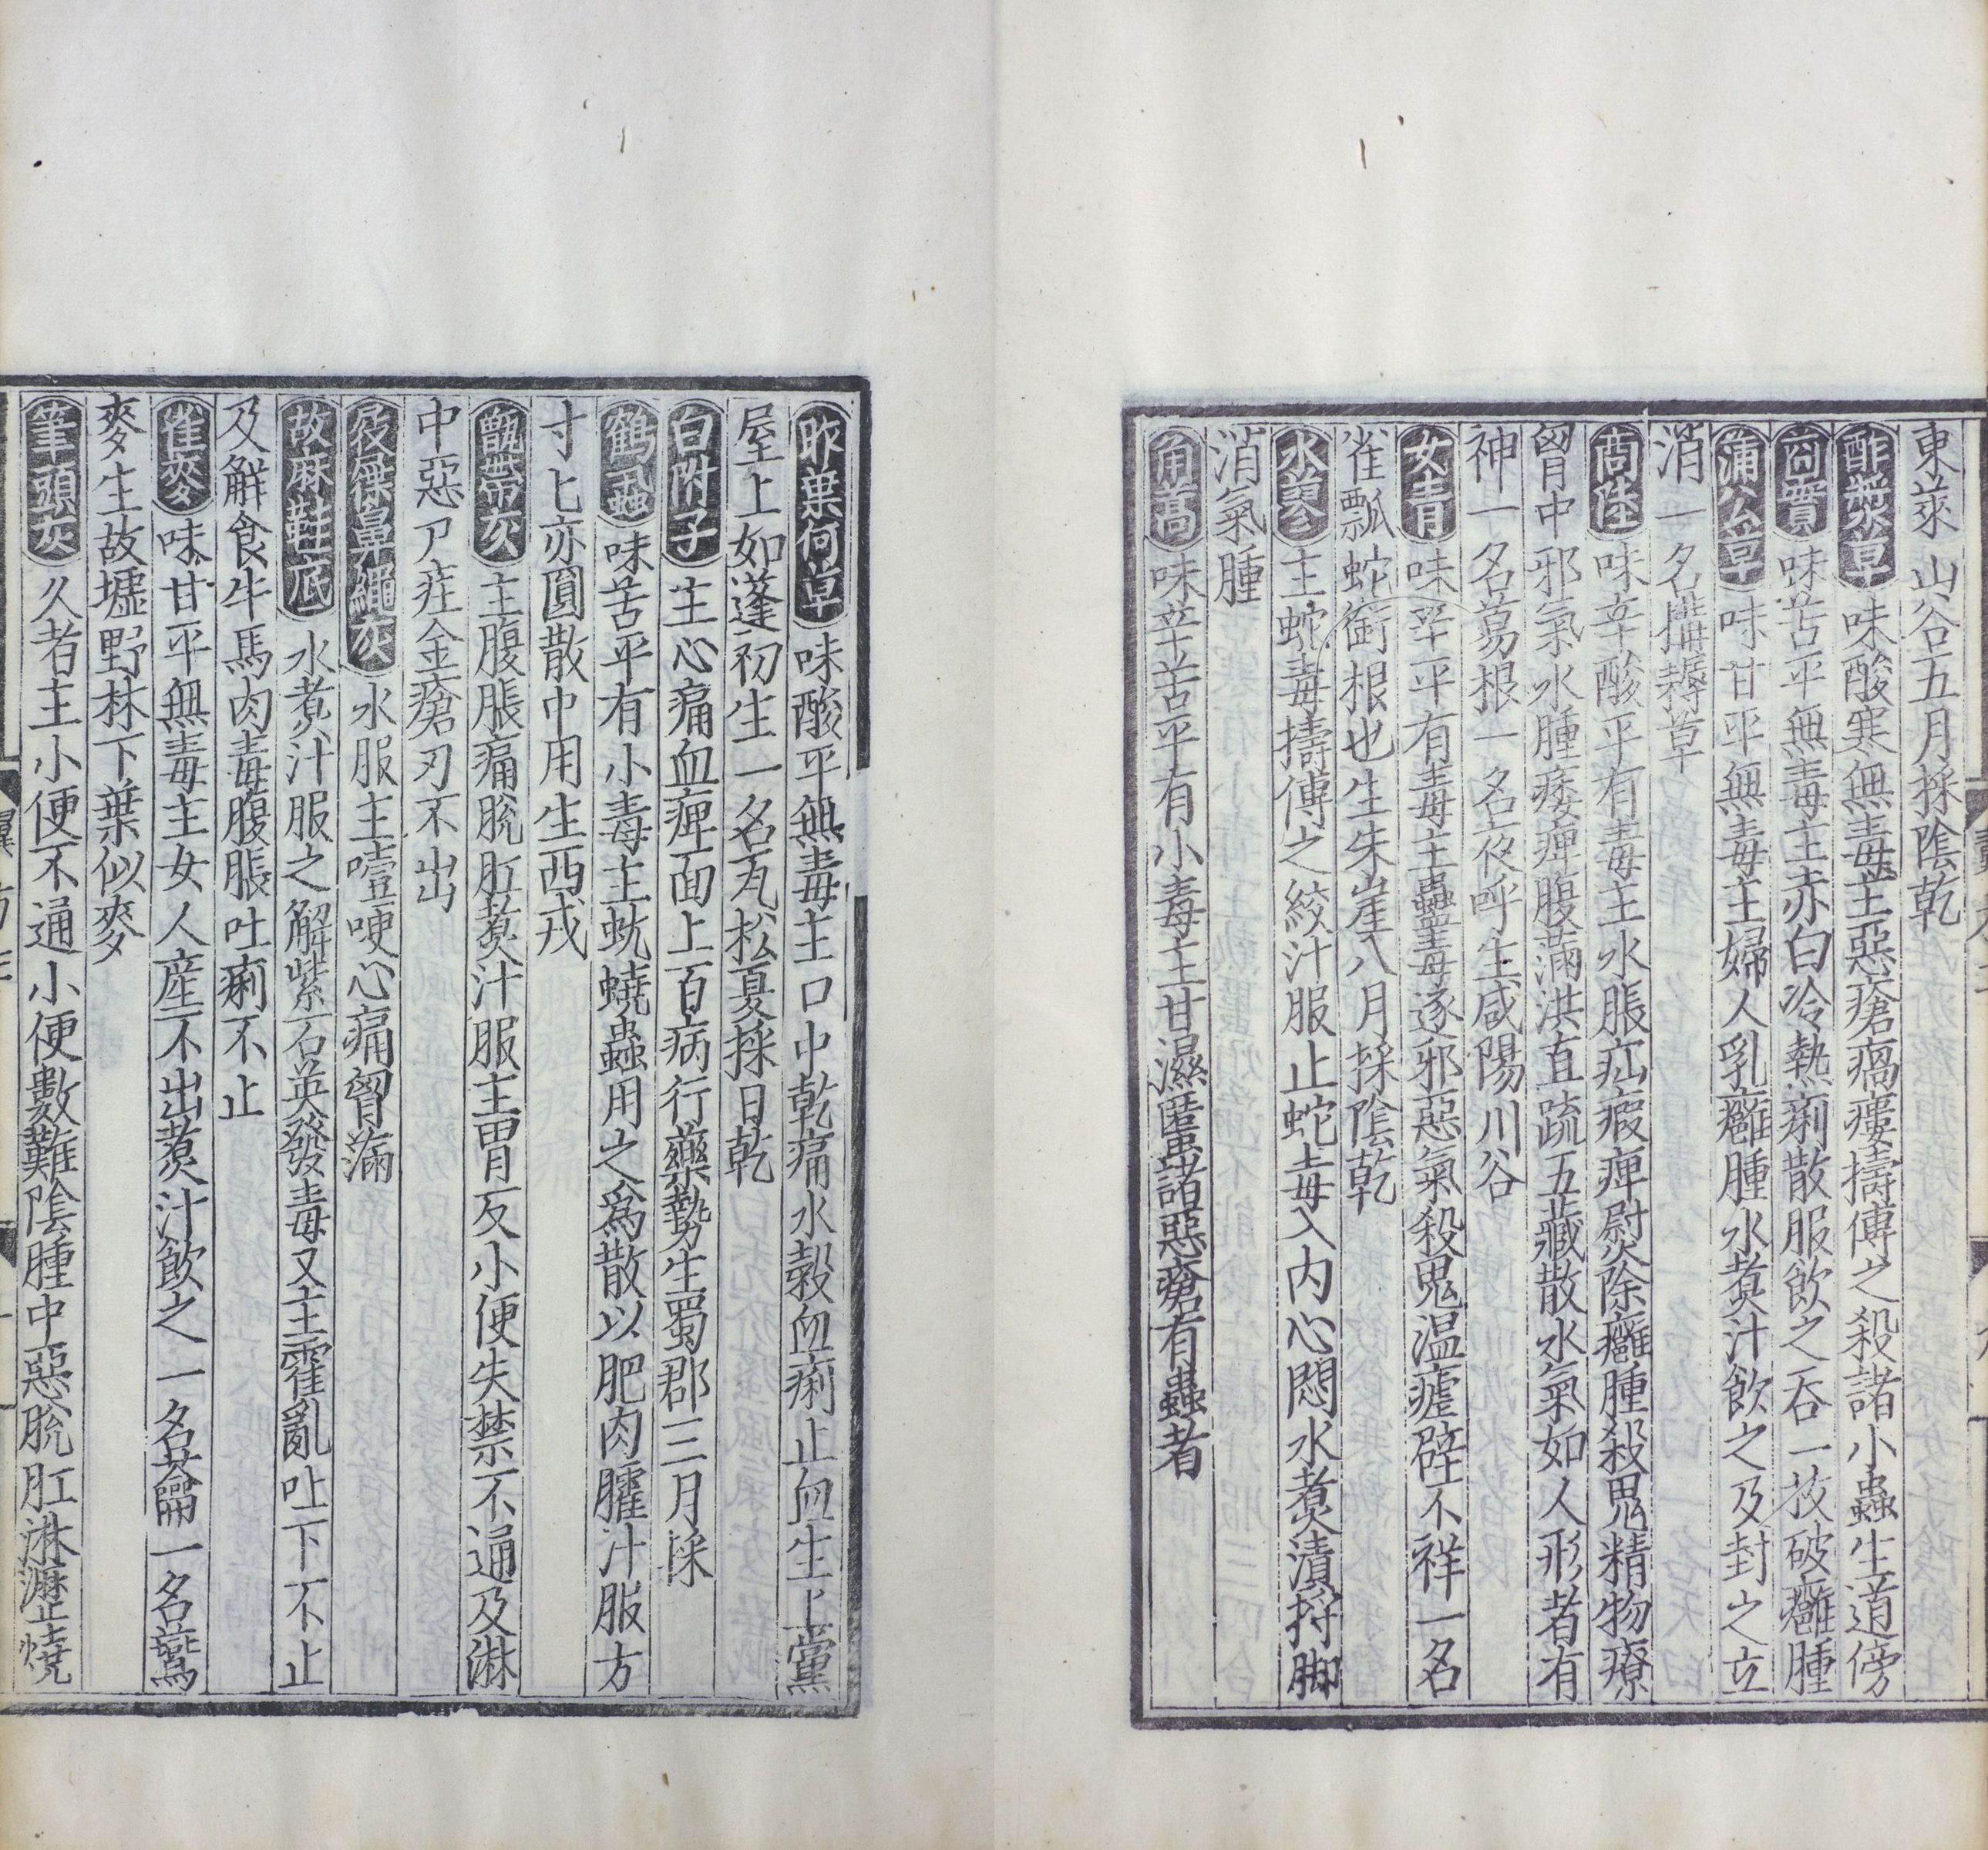 東莱山谷五月採陰乾
酢漿草味酸寒無毒主惡瘡瘑瘻擣傅之殺諸小蟲生道傍
𦭘實味苦平無毒主赤白冷熱痢散服飲之吞一枚破癰腫
蒲公草味甘平無毒主婦人乳癰腫水煑汁飲之及封之立
消一名搆耨草
商陸味辛酸平有毒主水脹疝瘕痺熨除癰腫殺鬼精物療
胷中邪氣水腫痿痺腹滿洪直疏五藏散水氣如人形者有
神一名葛根一名夜呼生咸陽川谷
女青味辛平有毒主蠱毒逐邪惡氣殺鬼温瘧辟不祥一名
雀瓢蛇銜根也生朱崖八月採陰乾
水蓼主蛇毒擣傅之絞汁服止蛇毒入内心悶水煑漬捋脚
消氣腫
角蒿味辛苦平有小毒主甘濕䘌諸惡瘡有蟲者
昨葉何草味酸平無毒主口中乾痛水穀血痢止血生上黨
屋上如蓬初生一名瓦松夏採日乾
白附子主心痛血痺面上百病行藥勢生蜀郡三月採
鶴蝨味苦平有小毒主蚘蟯蟲用之爲散以肥肉臛汁服方
寸匕亦圓散中用生西戎
甑帶灰主腹脹痛脫肛煑汁服主胃反小便失禁不通及淋
中惡尸疰金瘡刃不出
屐屧鼻繩灰水服主噎哽心痛胷滿
故麻鞋底水煑汁服之解紫石英發毒又主霍亂吐下不止
及解食牛馬肉毒腹脹吐痢不止
雀麥味甘平無毒主女人産不出煑汁飲之一名蘥一名鷰
麥生故墟野林下葉似麥
筆頭灰久者主小便不通小便數難陰腫中惡脫肛淋瀝燒